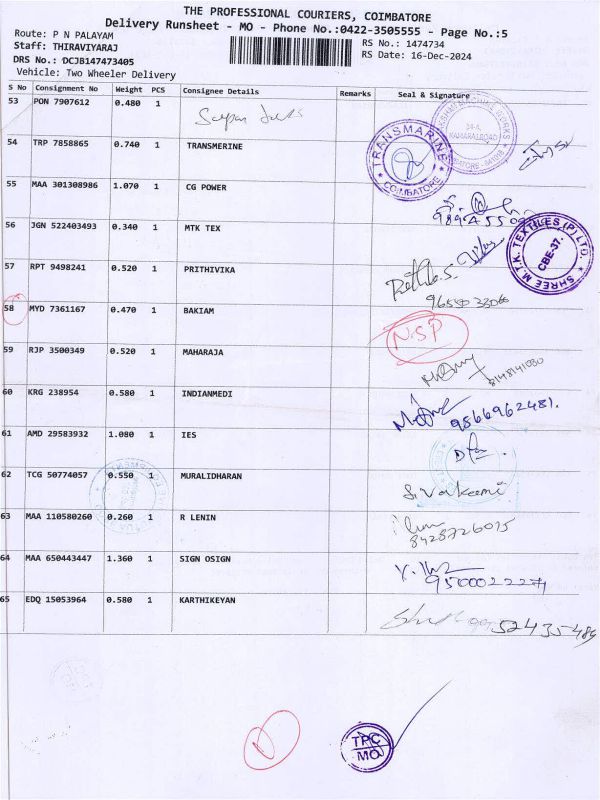 THE PROFESSIONAL COURIERS, COIMBATORE
Delivery Runsheet - MO - Phone No.:0422-3505555 - Page No.:5
Route: P N PALAYAM
RS No.: 1474734
Staff: THIRAVIYARAJ
RS Date: 16-Dec-2024
DRS No.: DCJB147473405
Vehicle: Two Wheeler Delivery
S No Consignment No Weight PCS Consignee Details Remarks Seal & Signature
53 PON 7907612 0.480 1
54 TRP 7858865 0.740 1 TRANSMERINE
TRANSMARINE
COIMBATORE
55 MAA 301308986 1.070 1 CG POWER
56 JGN 522403493 0.340 1 MTK TEX
SHREE M.T.K. TEXTILES (P) LTD.
CBE-37.
57 RPT 9498241 0.520 1 PRITHIVIKA
58 MYD 7361167 0.470 1 BAKIAM
N.S.P
59 RJP 3500349 0.520 1 MAHARAJA
60 KRG 238954 0.580 1 INDIANMEDI
9866962481.
61 AMD 29583932 1.080 1 IES
62 TCG 50774057 0.550 1 MURALIDHARAN
63 MAA 110580260 0.260 1 R LENIN
8428726015
64 MAA 650443447 1.360 1 SIGN OSIGN
65 EDQ 15053964 0.580 1 KARTHIKEYAN
TPC
MO